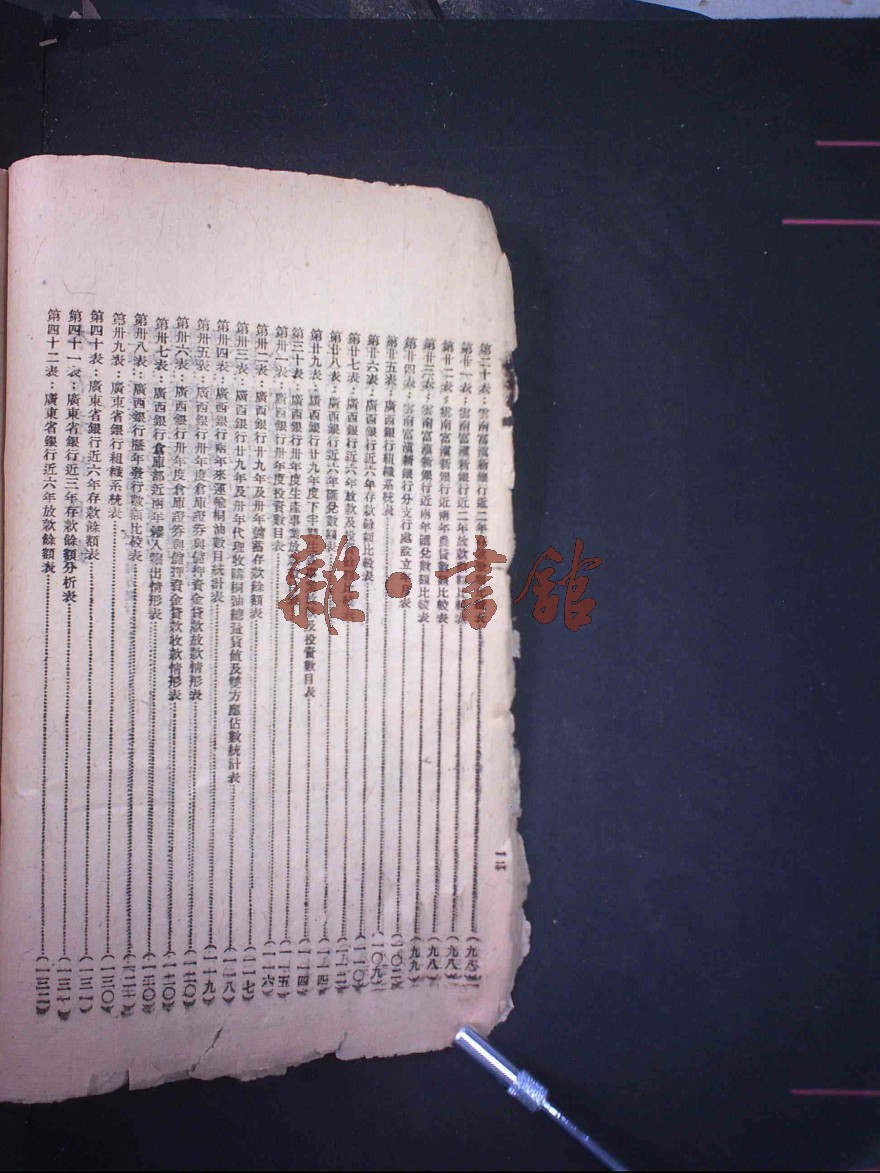 第二十表：雲南富滇新銀行近二年
第廿一表：雲南富滇新銀行近二年放款 額比較表（九八）
第廿二表：雲南富滇新銀行近兩年農貸數額比較表（九八）
第廿三表：雲南富滇新銀行近兩年匯兌數額比較表（九九）
第廿四表：雲南富滇新銀行分支行處設立年 表
第廿五表：廣西銀行組織系統表
第廿六表：廣西銀行近六年存款餘額比較表（一〇九）
第廿七表：廣西銀行近六年放款及投 比 （一一〇）
第廿八表：廣西銀行近六年匯兌數額表
第廿九表：廣西銀行廿九年度下半期生 及投資數目表（一一四）
第三十表：廣西銀行卅年度生產事業放 （一一四）
第卅一表：廣西銀行卅年度投資數目表（一一五）
第卅二表：廣西銀行廿九年及卅年儲蓄存款餘額表（一一六）
第卅三表：廣西銀行廿九年及卅年代理收購桐油總量貨值及雙方應佔數統計表（一一七）
第卅四表：廣西銀行兩年來運輸桐油數目統計表（一一八）
第卅五表：廣西銀行卅年度倉庫證券與儲押資金貸款放款情形表（一一九）
第卅六表：廣西銀行卅年度倉庫證券與儲押資金貸款收款情形表（一二〇）
第卅七表：廣西銀行倉庫部近兩年 入 出情形表（一二〇）
第卅八表：廣西銀行歷年發行數額比較表
第卅九表：廣東省銀行組織系統表（一三〇）
第四十表：廣東省銀行近六年存款餘額表（一三一）
第四十一表：廣東省銀行近三年存款餘額分析表（一三一）
第四十二表：廣東省銀行近六年放款餘額表（一三二）
雜·書館